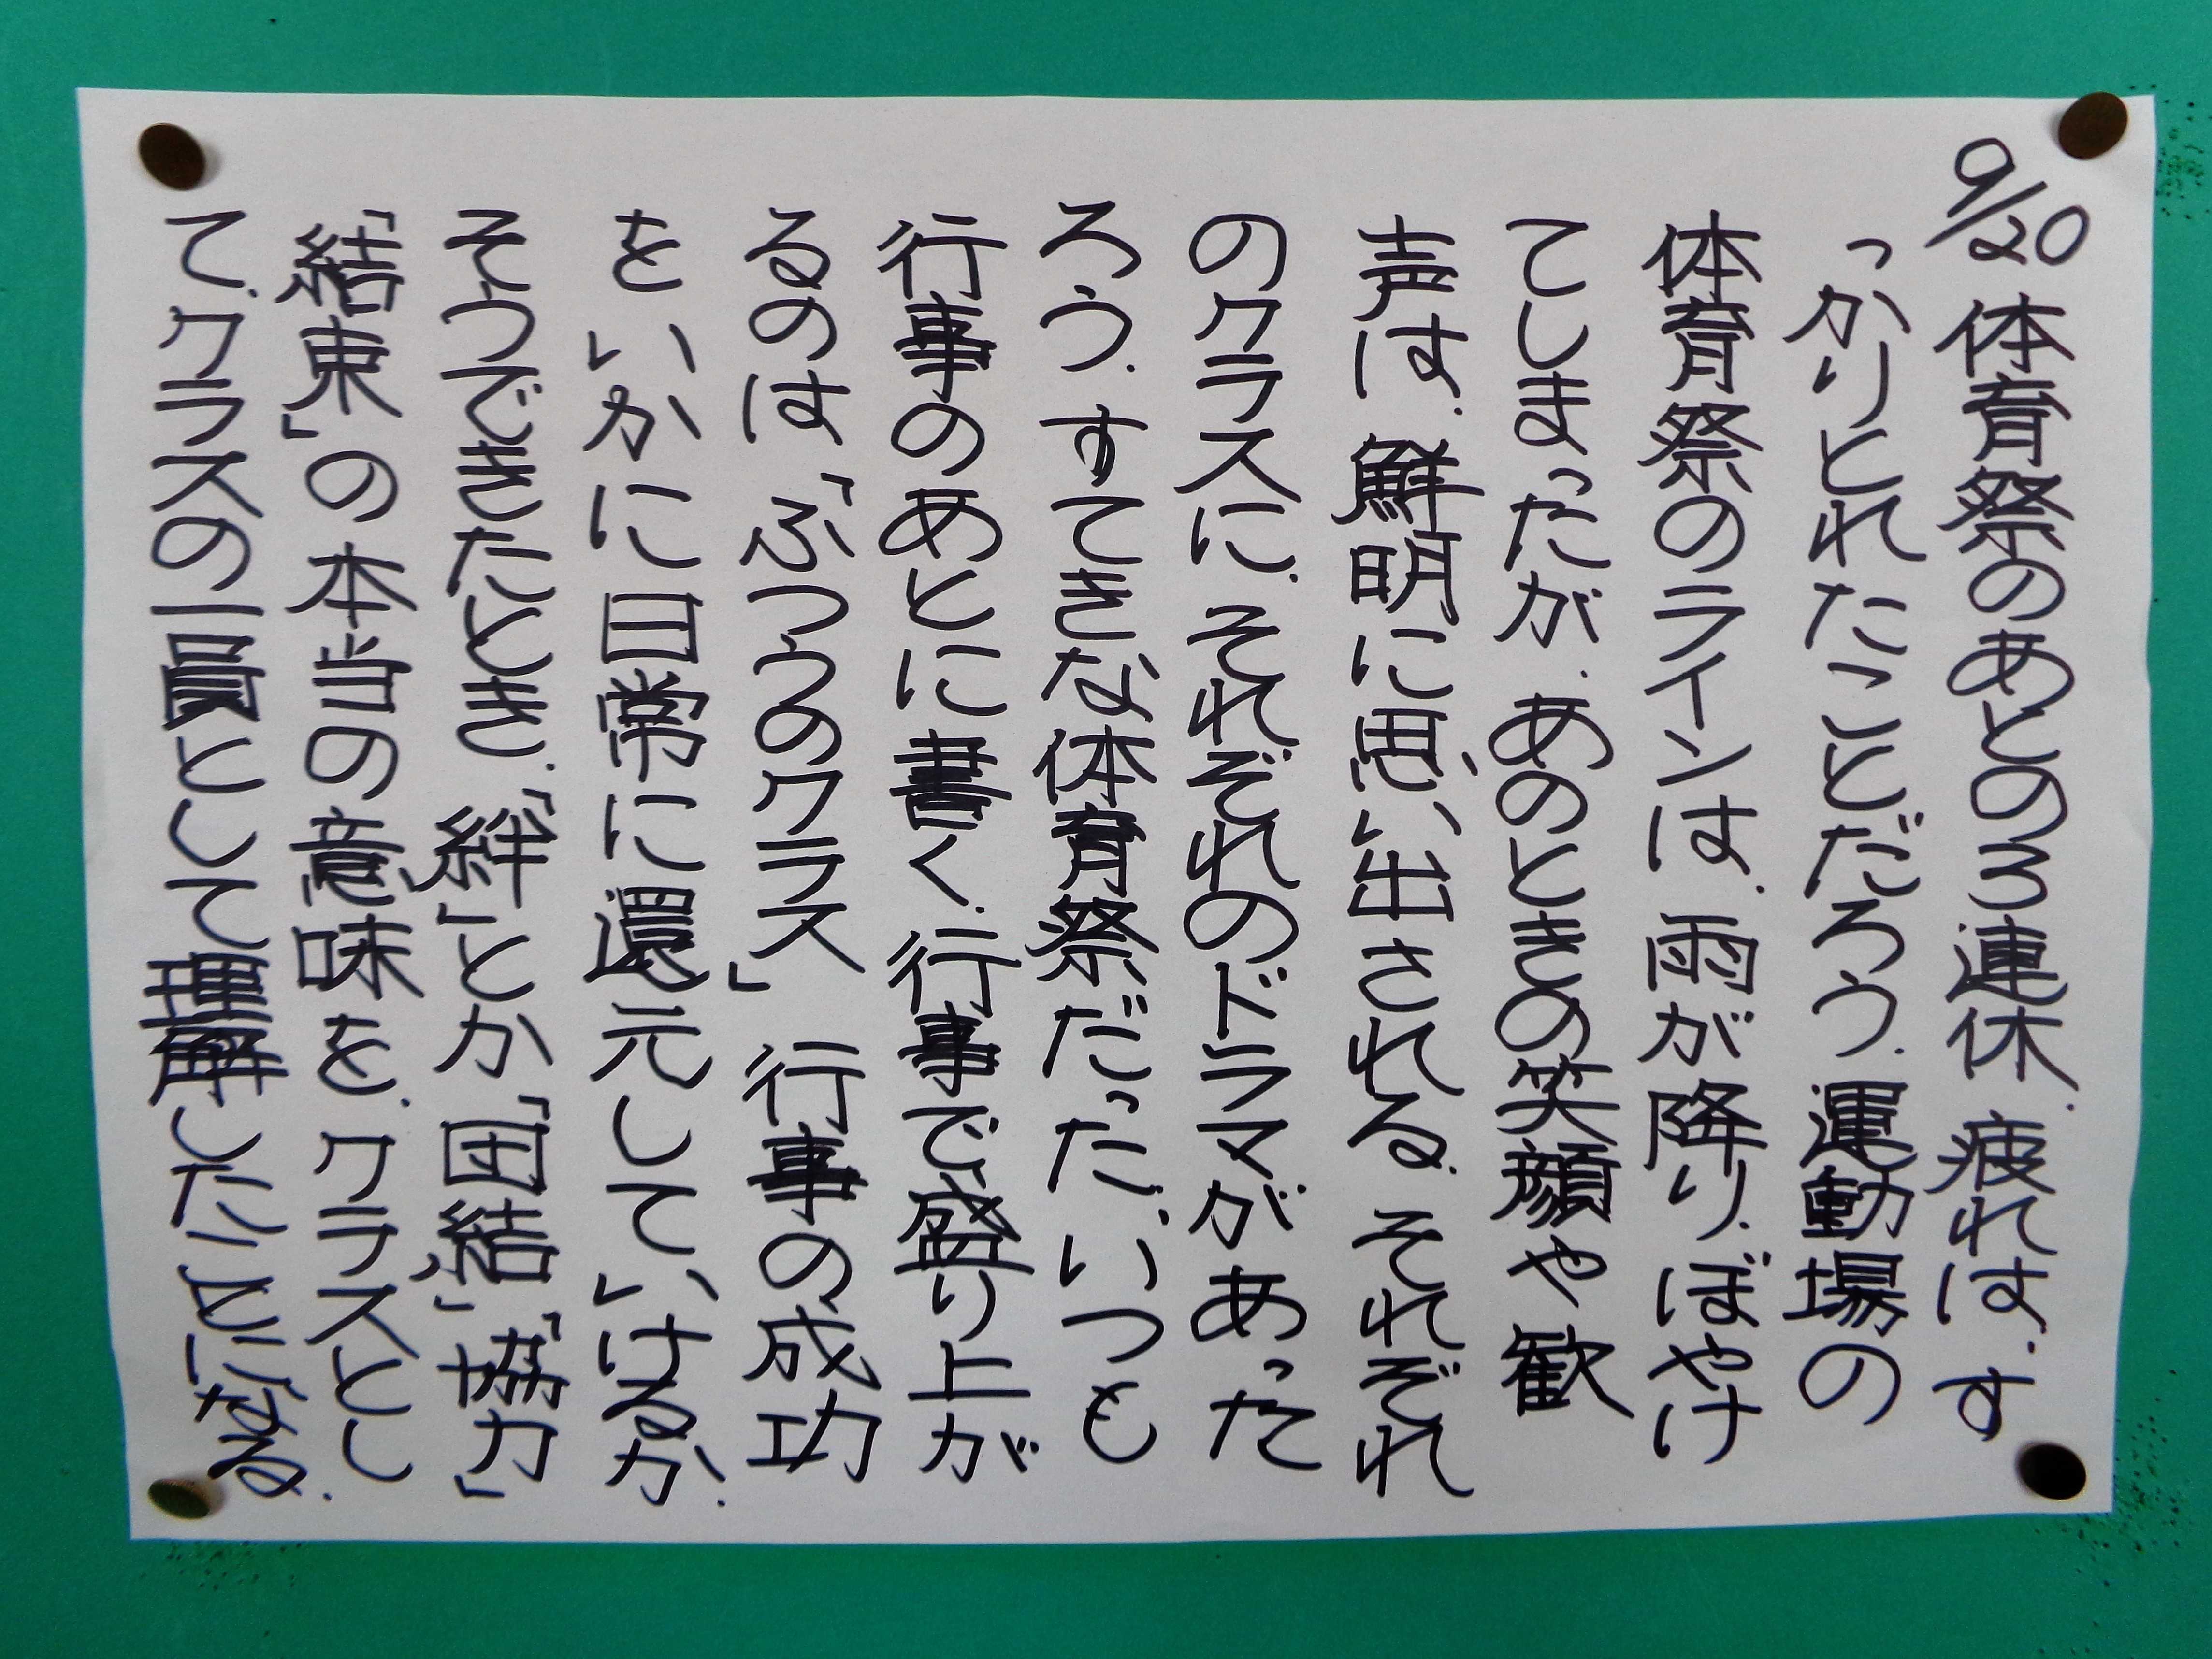 9/20 体育祭のあとの3連休.疲れは.す
っかりとれたことだろう.運動場の
体育祭のラインは.雨が降り.ぼやけ
てしまったが.あのときの笑顔や歓
声は.鮮明に思い出される.それぞれ
のクラスに.それぞれのドラマがあった
ろう.すてきな体育祭だった.いつも
行事のあとに書く.行事で盛り上が
るのは「ふつうのクラス」行事の成功
を.いかに日常に還元していけるか.
そうできたとき.「絆」とか「団結」「協力」
「結束」の本当の意味を.クラスとし
て.クラスの一員として理解したことになる.